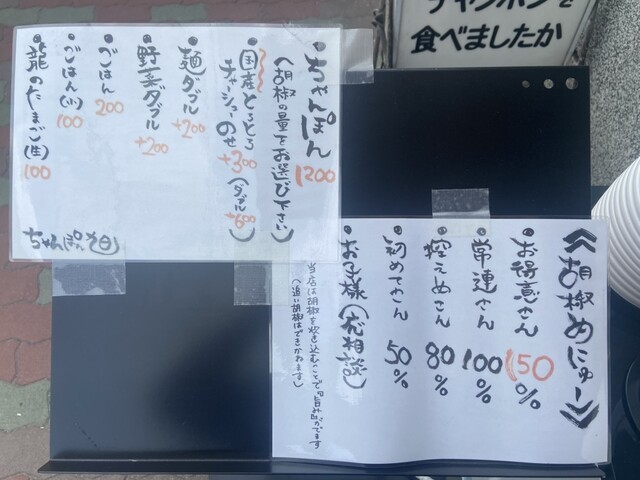 チャンポンを
食べましたか
・ちゃんぽん 1200
(胡椒の量をお選び下さい)
・国産とろとろ
チャーシューのせ +300 (ダブル +600)
・麺ダブル +200
・野菜ダブル +200
・ごはん 200
・ごはん(小) 100
・龍のたまご(生) 100
《胡椒めにゅー》
・お得意さん 150%
・常連さん 100%
・控えめさん 80%
・初めてさん 50%
・お子様(応相談)
当店は胡椒を炊き込むことで旨みがでてます
(追い胡椒はできかねます)